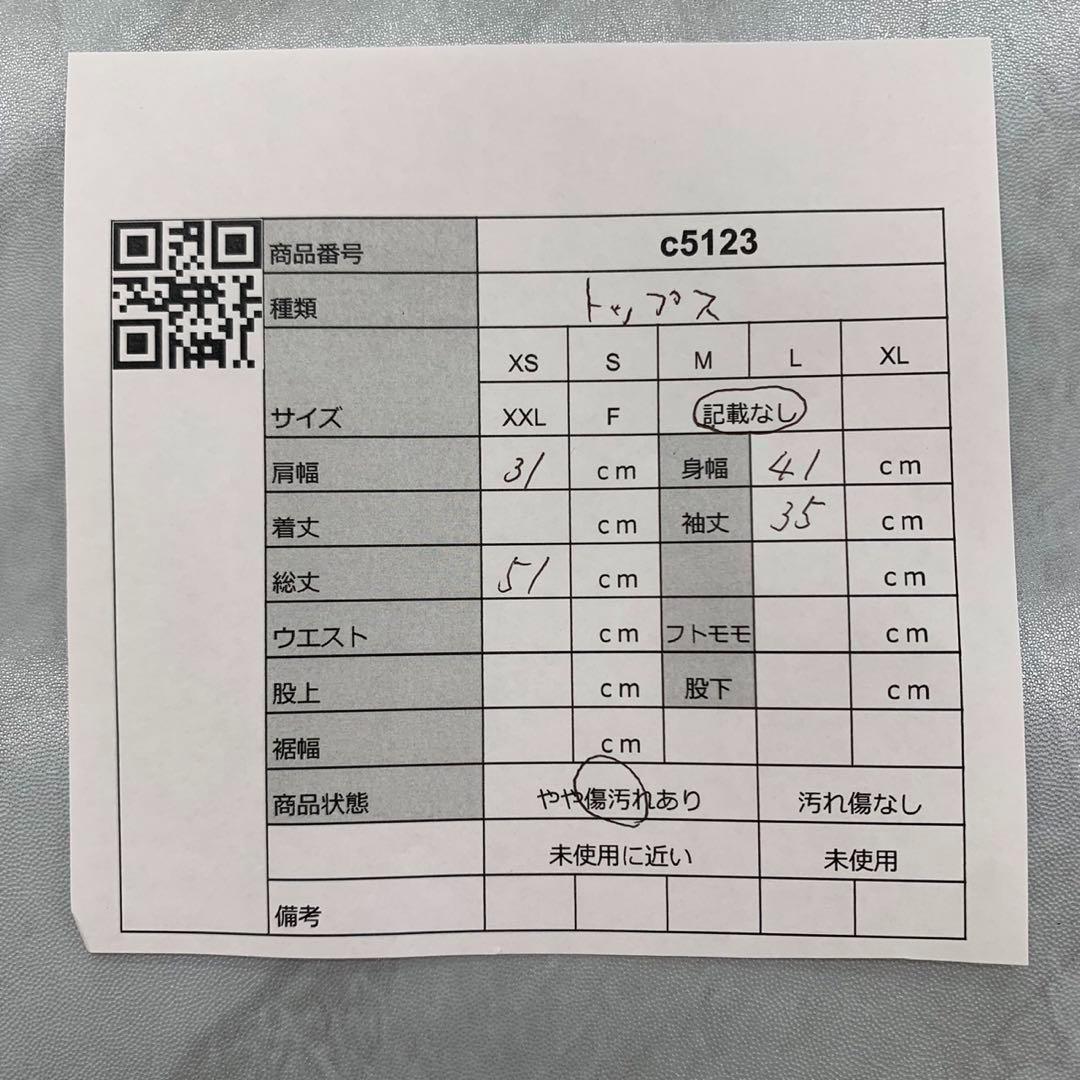 商品番号 c5123
種類 トップス
XS S M L XL
サイズ XXL F 記載なし
肩幅 31 cm 身幅 41 cm
着丈 cm 袖丈 35 cm
総丈 51 cm cm
ウエスト cm フトモモ cm
股上 cm 股下 cm
裾幅 cm
商品状態 やや傷汚れあり 汚れ傷なし
未使用に近い 未使用
備考